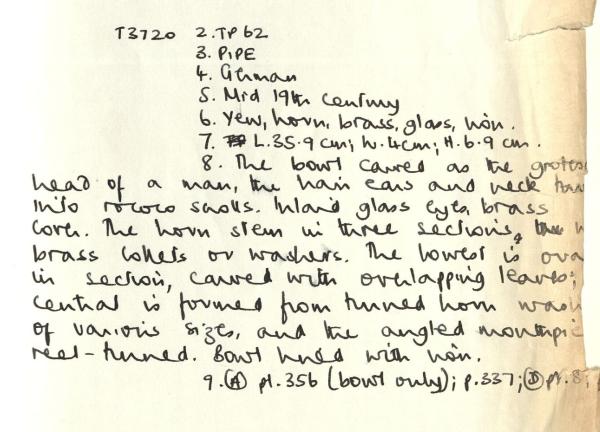 T3720 2. TP 62
3. PIPE
4. German
5. Mid 19th century
6. Yew, horn, brass, glass, iron.
7. L. 35.9 cm; W. 4cm; H. 6.9 cm.
8. The bowl carved as the grotes
head of a man, the hair ears and neck
into rococo scrolls. Inlaid glass eyes, brass
cover. The horn stem in three sections,
brass collets or washers. The lowest is ova
in section, carved with overlapping leaves;
central is formed from turned horn wash
of various sizes, and the angled mouthpie
reel-turned. Bowl lined with iron.
9. (A) pl. 356 (bowl only); p. 337; (D) pl. 8;